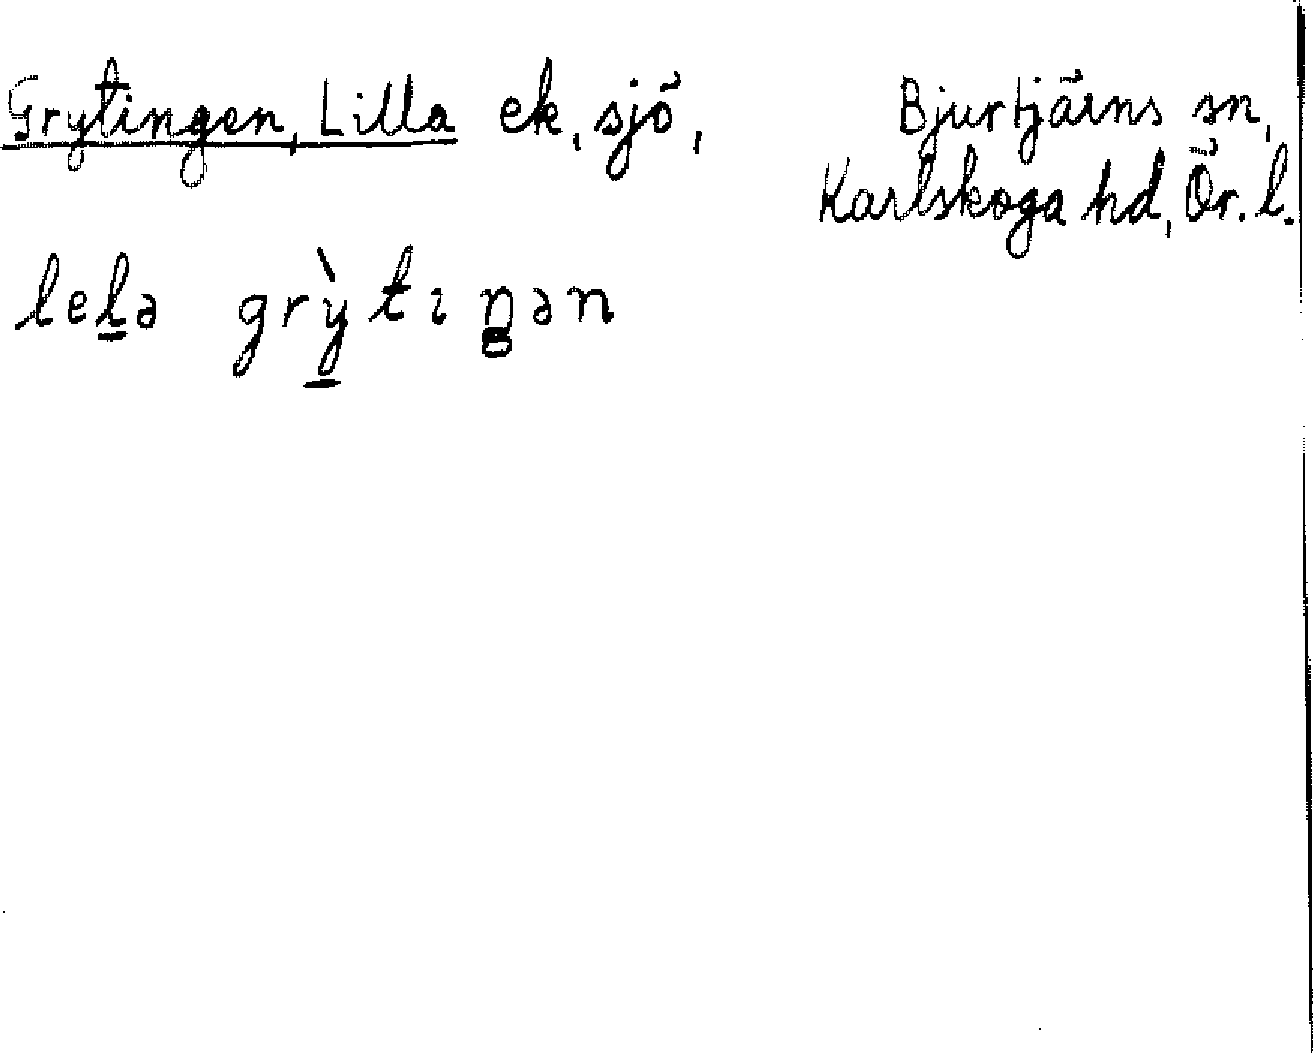 Grytingen, Lilla ek, sjö, Bjurtjärns sn,
Karlskoga hd, Ör. l.
lel̲ə grỳ̲tıŋən